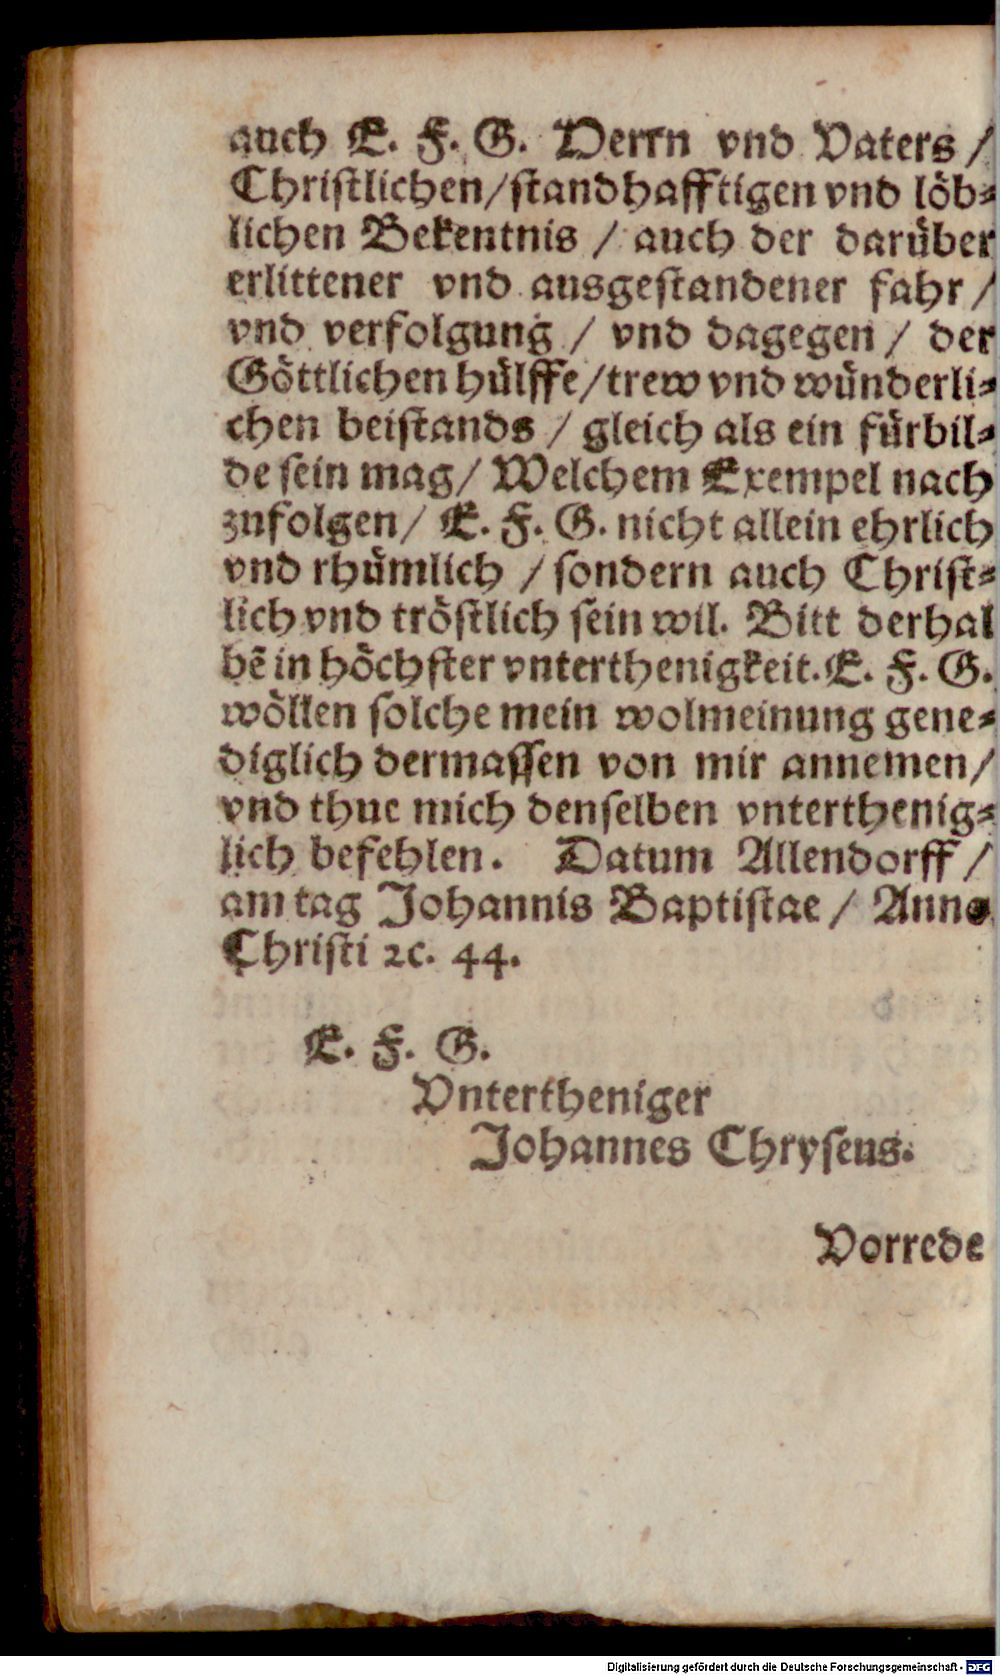 auch E. F. G. Herrn vnd Vaters /
Christlichen/standhafftigen vnd löb⸗
lichen Bekentnis / auch der darüber
erlittener vnd ausgestandener fahr /
vnd verfolgung / vnd dagegen / der
Göttlichen hülffe/trew vnd wünderli⸗
chen beistands / gleich als ein fürbil⸗
de sein mag/ Welchem Exempel nach
zufolgen/ E. F. G. nicht allein ehrlich
vnd rhümlich / sondern auch Christ⸗
lich vnd tröstlich sein wil. Bitt derhal
bẽ in höchster vnterthenigkeit. E. F. G.
wöllen solche mein wolmeinung gene⸗
diglich dermassen von mir annemen/
vnd thue mich denselben vnterthenig⸗
lich befehlen. Datum Allendorff /
am tag Johannis Baptistae / Anno
Christi ꝛc. 44.
E. F. G.
Vntertheniger
Johannes Chryseus.
Vorrede
Digitalisierung gefördert durch die Deutsche Forschungsgemeinschaft - DFG